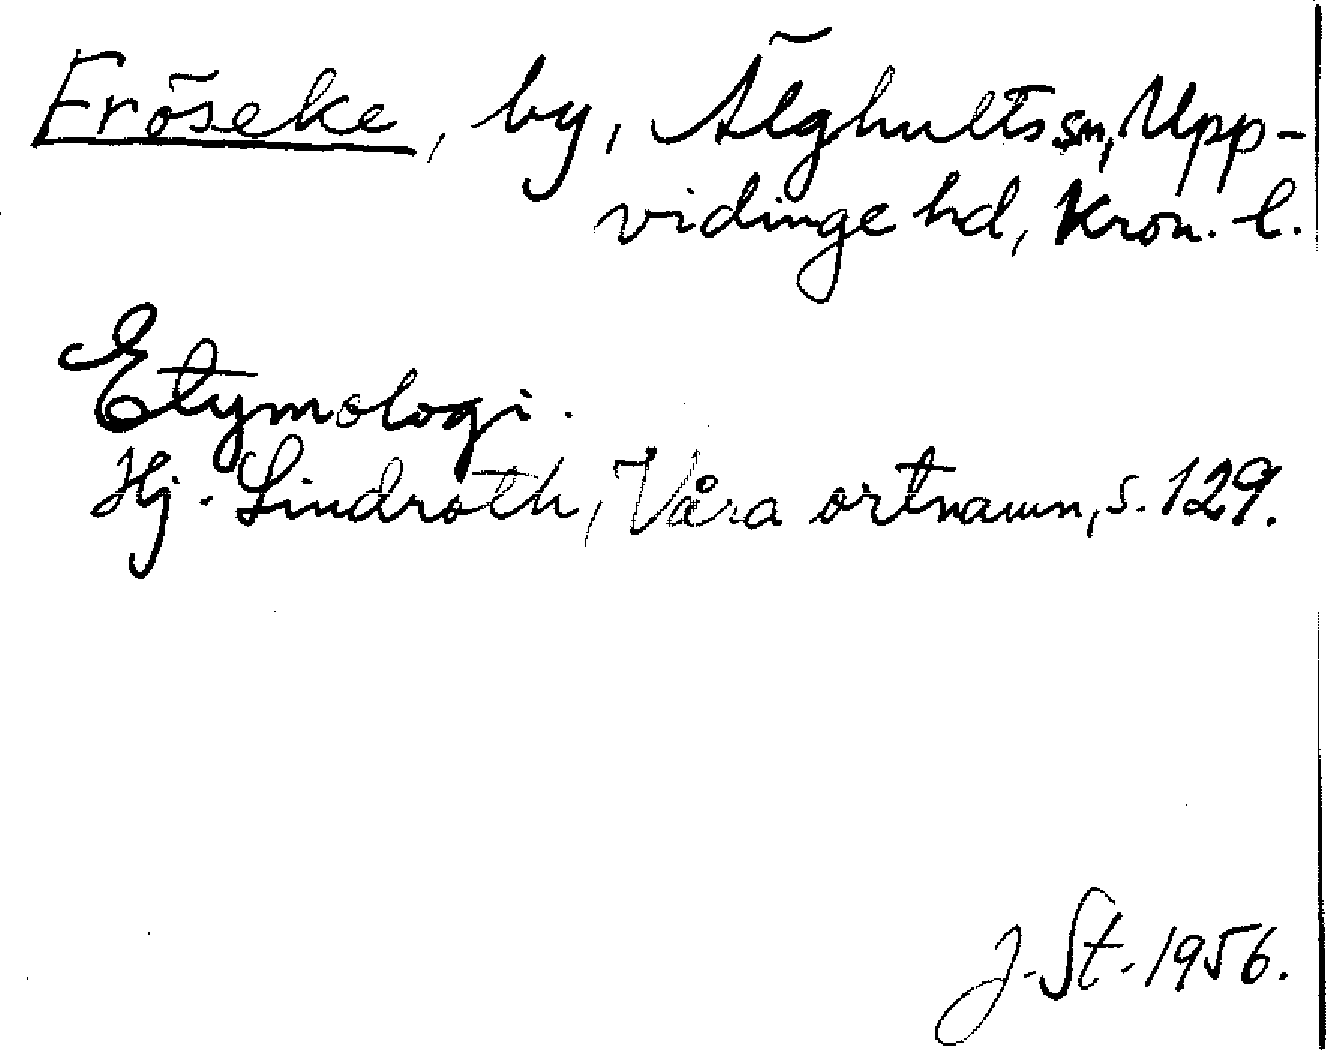 Fröseke, by, Älghults sn, Upp-
vidinge hd, Kron. l.
Etymologi.
Hj. Lindroth, Våra ortnamn, s. 129.
J. St. 1956.